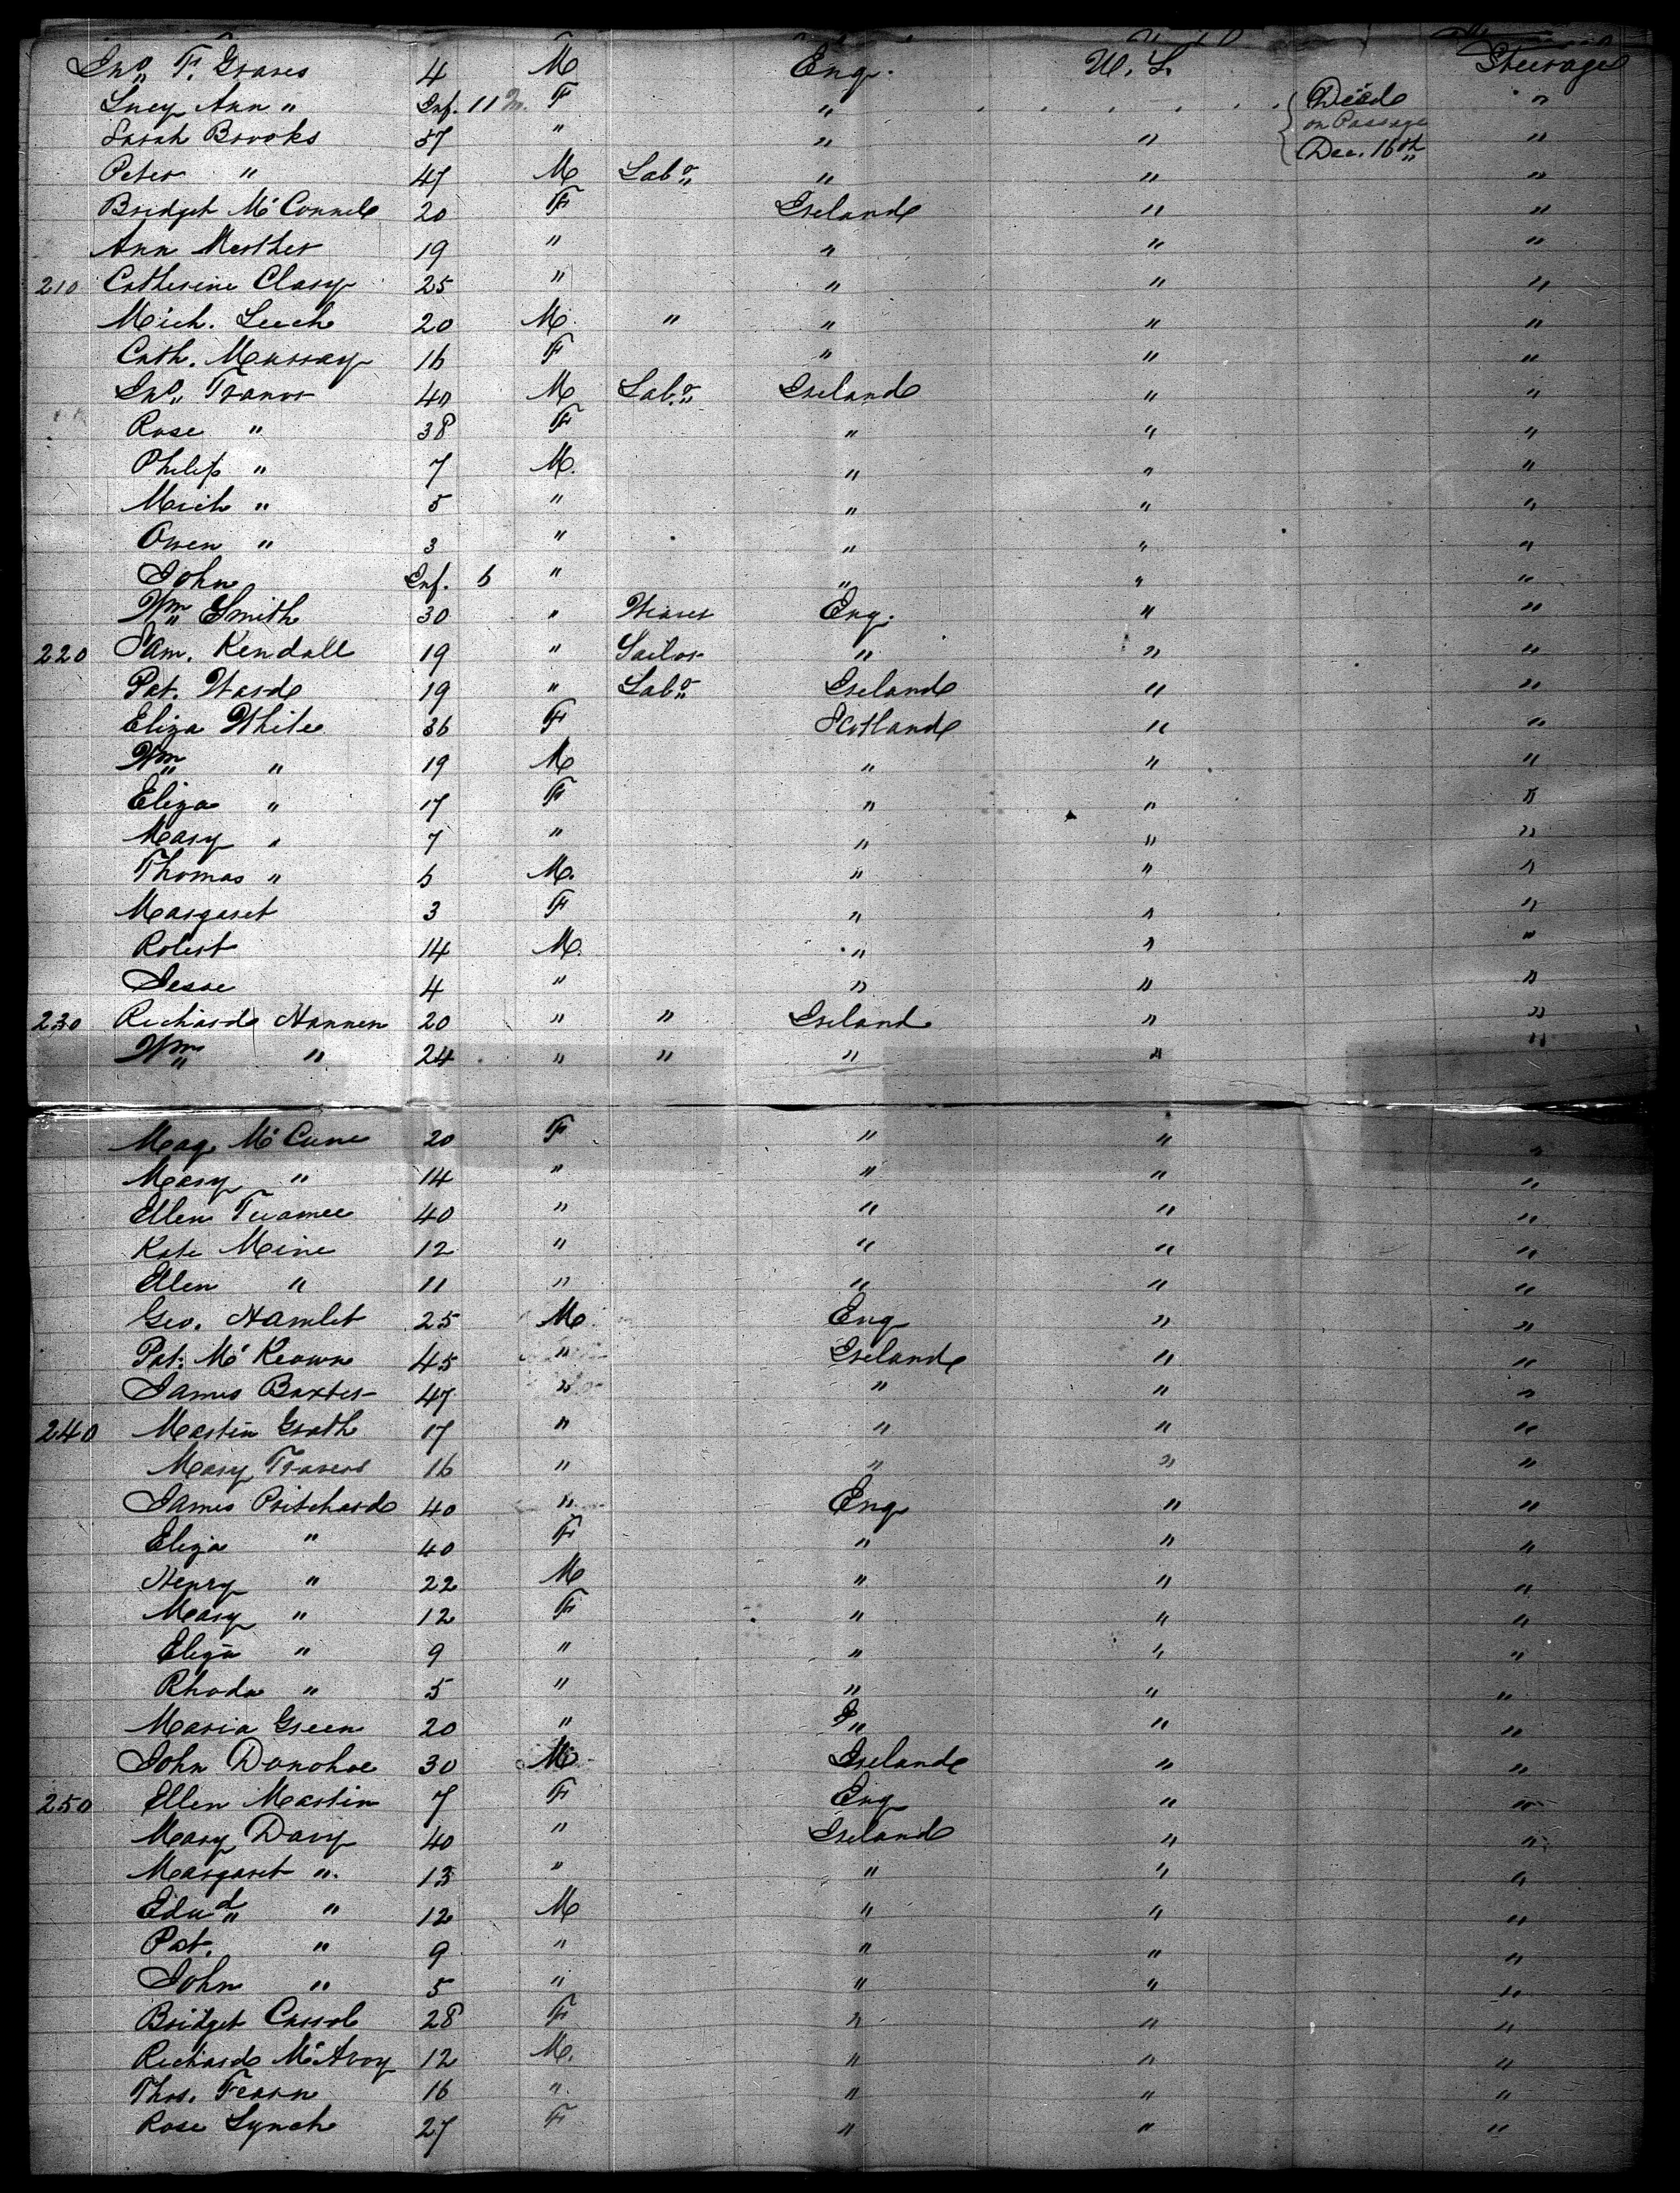 Jno. F. Graves 4 M Eng. U. S. Steerage
Lucy Ann " Inf. 11 m. F " Died "
on Passage
Sarah Brooks 57 " " " Dec. 16th "
Peter " 47 M Labr " " "
Bridget McConnel 20 F Ireland " "
Ann 19 " " " "
210 Catherine Clary 25 " " " "
Mich. Leech 20 M. " " " "
Cath. Murray 16 F " " "
Jno. Tranor 40 M Labr Ireland " "
Rose " 38 F " " "
Philip " 7 M. " " "
Mich " 5 " " " "
Owen " 3 " " " "
John Inf. 6 " " " "
Wm Smith 30 " Weaver Eng. " "
220 Sam. Kendall 19 " Sailor " " "
Pat. Ward 19 " Labr Ireland " "
Eliza White 36 F Scotland " "
Wm " 19 M " " "
Eliza " 17 F " " "
Mary " 7 " " " "
Thomas " 6 M. " " "
Margaret 3 F " " "
Robert 14 M. " " "
Jesse 4 " " " "
230 Richard Hannen 20 " " Ireland " "
Wm " 24 " " " " "
Mag. McCune 20 F " " "
Mary " 14 " " " "
Ellen Tuamee 40 " " " "
Kate Meine 12 " " " "
Ellen " 11 " " " "
Geo. Hamlet 25 M Eng " "
Pat. McKeown 45 " Ireland " "
James Baxter 47 " " " "
240 Martin Grath 17 " " " "
Mary Travers 16 " " " "
James Pritchard 40 " Eng " "
Eliza " 40 F " " "
Henry " 22 M " " "
Mary " 12 F " " "
Eliza " 9 " " " "
Rhoda " 5 " " " "
Maria Green 20 " " "
John Donohoe 30 M Ireland " "
250 Ellen Martin 7 F Eng " "
Mary Davy 40 " Ireland " "
Margaret " 13 " " " "
Edwd " 12 M " " "
Pat. " 9 " " " "
John " 5 " " " "
Bridget Carrol 28 F " " "
Richard McAvoy 12 M. " " "
Thos. Fearn 16 " " " "
Rose Lynch 27 F " " "